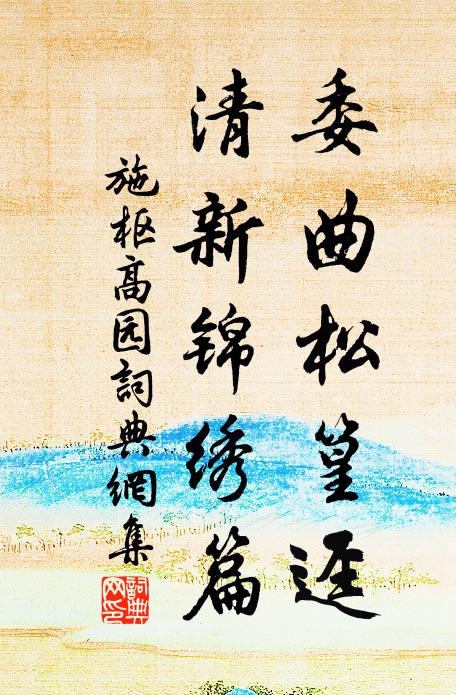 委曲松篁逕
清新锦绣篇
施枢高园詞典網集
詞典
网印